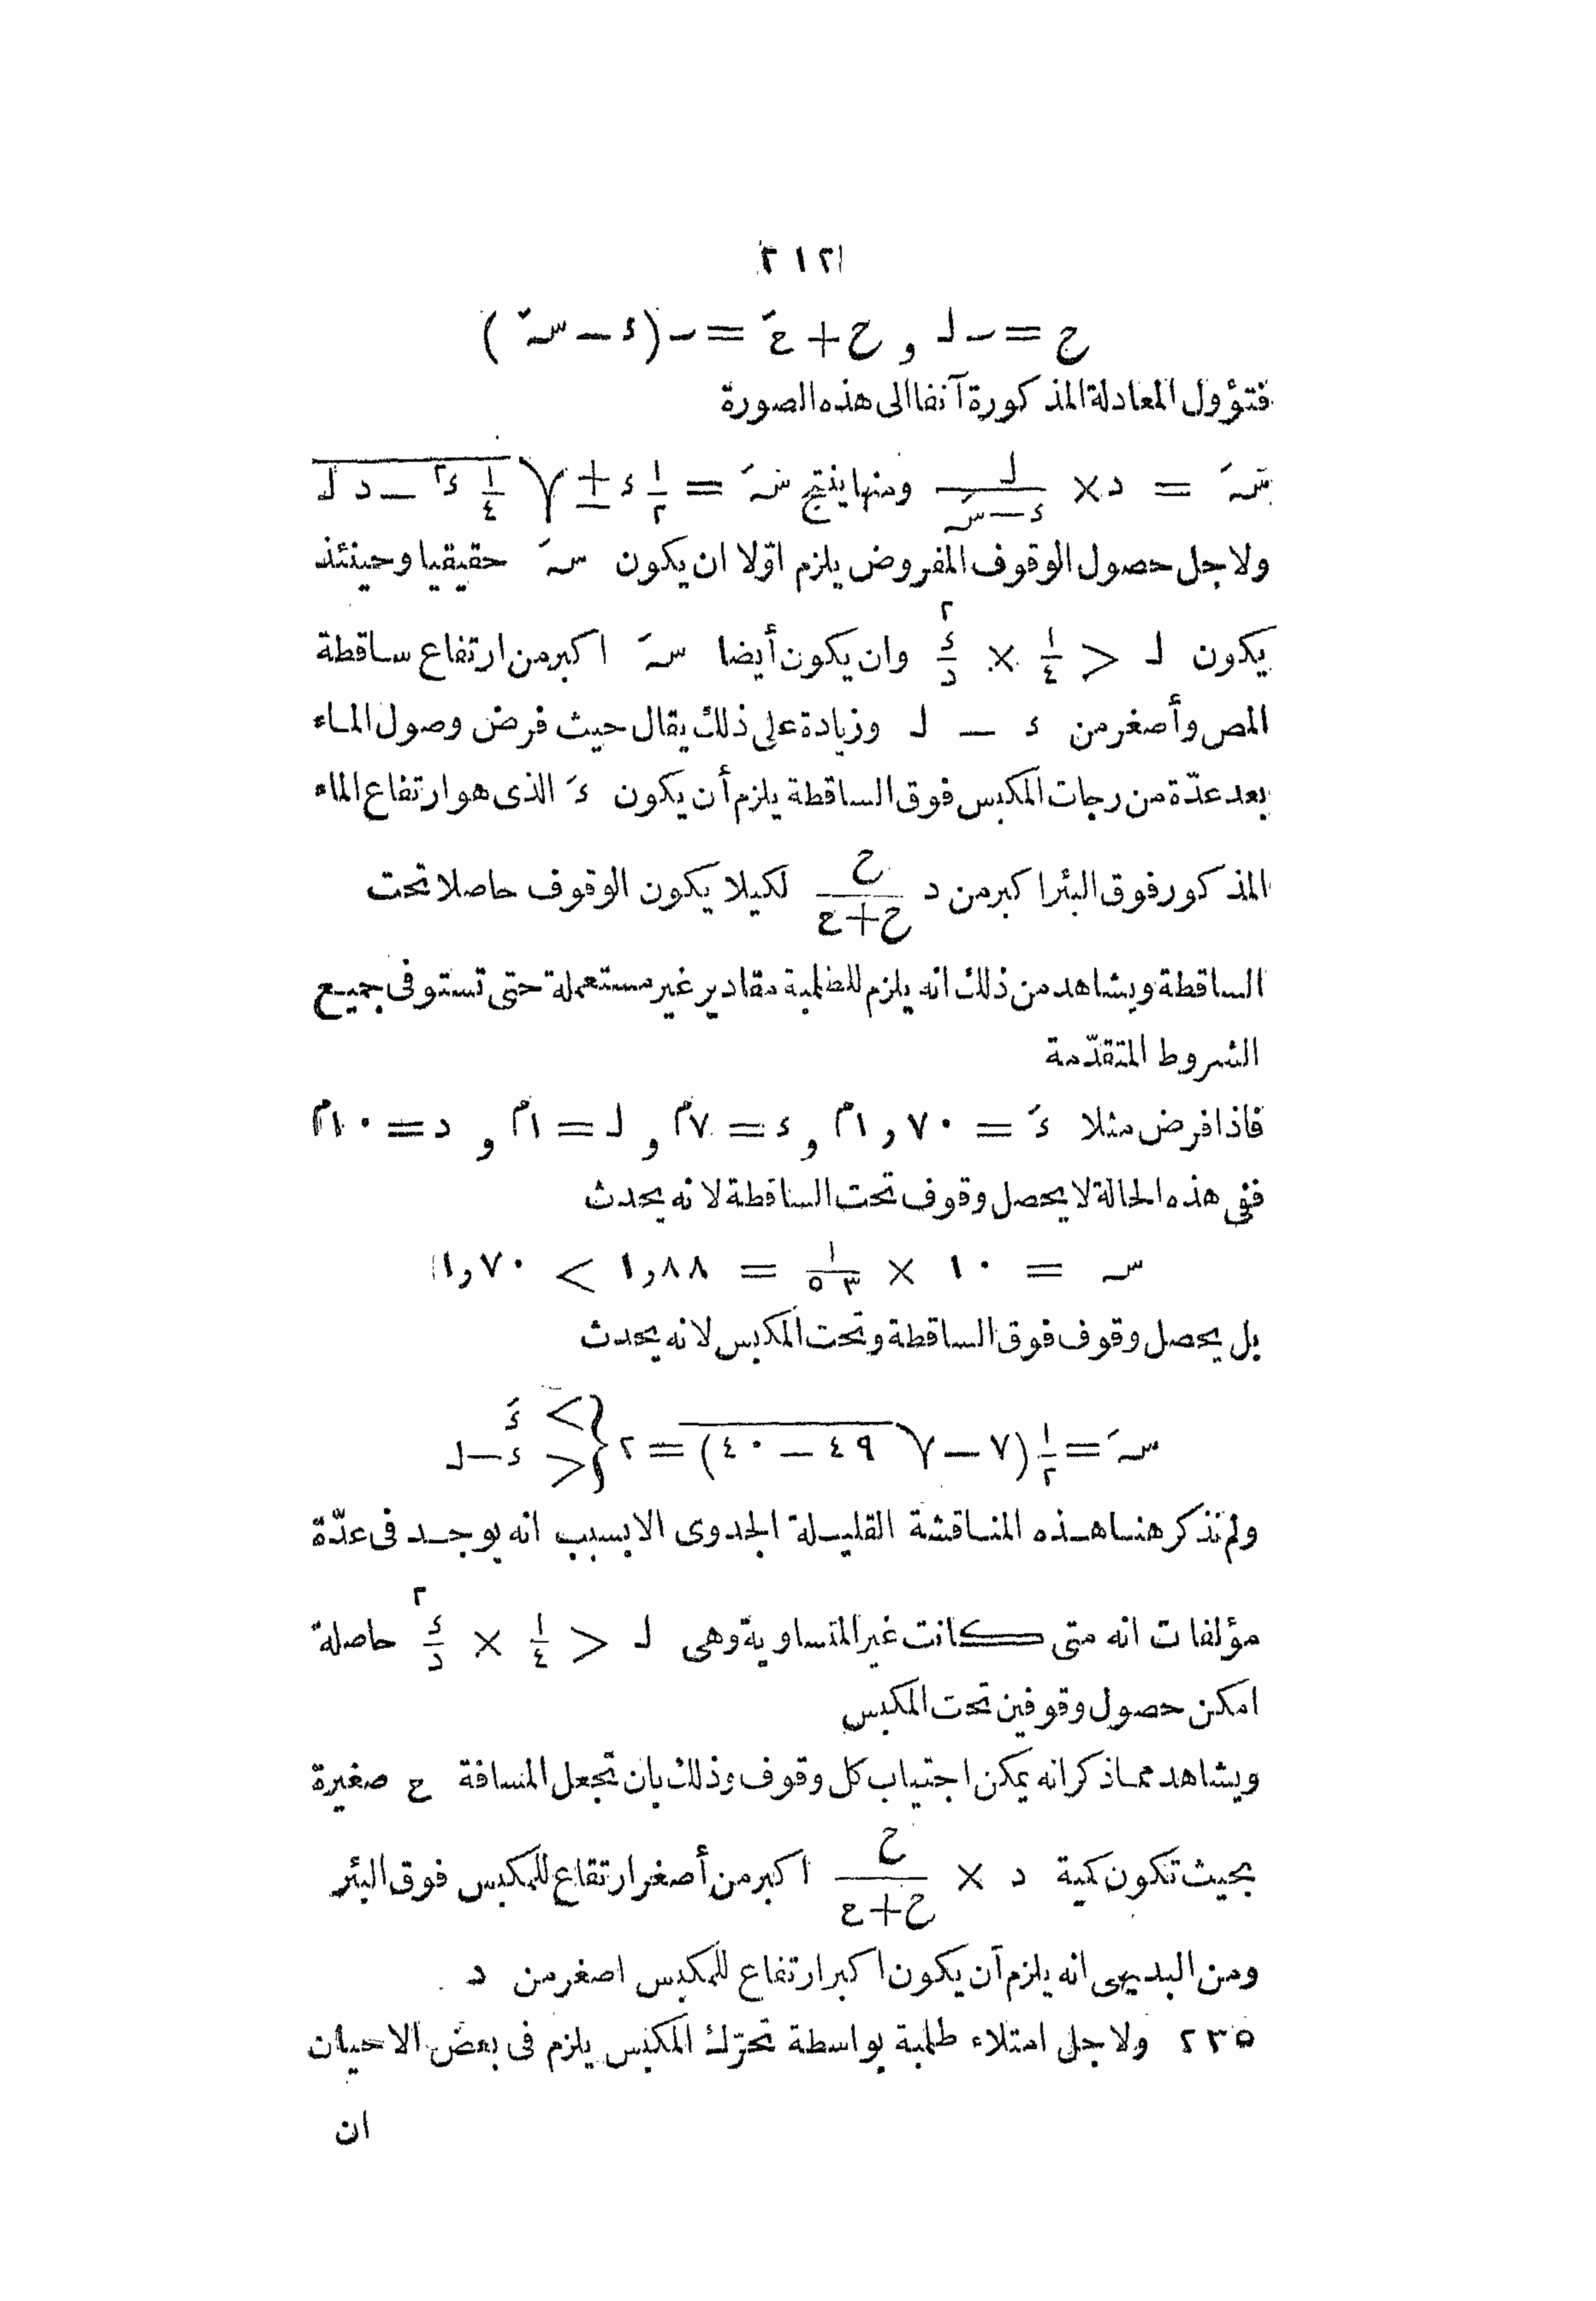 ٢١٢
ح = ى ل و ح + حَ = ى (ء − سَه)
فتؤول المعادلة المذكورة آنفا الى هذه الصورة
سَه = د × ل/(ء − سَه) ومنها ينتج سَه = ١/٢ ء ± √(١/٤ ء٢ − د ل)
ولاجل حصول الوقوف المفروض يلزم اوّلا ان يكون سَه حقيقيا وحينئذ
يكون ل < ١/٤ × ء٢/د وان يكون أيضا سَه اكبر من ارتفاع ساقطة
المص وأصغر من ء − ل وزيادة على ذلك يقال حيث فرض وصول الماء
بعد عدّة من رجات المكبس فوق الساقطة يلزم أن يكون ءَ الذى هو ارتفاع الماء
المذكور فوق البئر اكبر من د ح/(ح + ع) لكيلا يكون الوقوف حاصلا تحت
الساقطة ويشاهد من ذلك انه يلزم للطلمبة مقادير غير مستعملة حتى تستوفى جميع
الشروط المتقدّمة
فاذا فرض مثلا ءَ = ١,٧٠م و ء = ٧م و ل = ١م و د = ١٠م
ففى هذه الحالة لا يحصل وقوف تحت الساقطة لانه يحدث
سه = ١٠ × ١/٥٣ = ١,٨٨ > ١,٧٠
بل يحصل وقوف فوق الساقطة وتحت المكبس لانه يحدث
سَه = ١/٢ (٧ − √(٤٩ − ٤٠)) = ٢ { > ءَ
< ء − ل
ولم نذكر هنا هذه المناقشة القليلة الجدوى الا بسبب انه يوجد فى عدّة
مؤلفات انه متى كانت غير المتساوية وهى ل < ١/٤ × ء٢/د حاصلة
امكن حصول وقوفين تحت المكبس
ويشاهد مما ذكر انه يمكن اجتياب كل وقوف وذلك بان تجعل المسافة ع صغيرة
بحيث تكون كمية د × ح/(ح + ع) اكبر من أصغر ارتفاع للمكبس فوق البئر
ومن البديهى انه يلزم أن يكون اكبر ارتفاع للمكبس اصغر من د
٢٣٥ ولاجل امتلاء طلمبة بواسطة تحرّك المكبس يلزم فى بعض الاحيان
ان